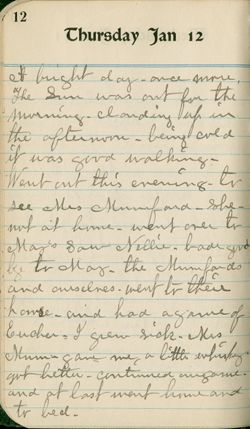 12
Thursday Jan 12
A bright day - once more.
The Sun was out for the
morning - clouding up in
the afternoon - being cold
it was good walking -
Went out this evening - to
see Mrs Mumford - she
not at home - went over to
May's Saw Nellie - bade good
bye to May - the Mumfords
and ourselves - went to their
house - and had a game of
Eucher - I grew sick - Mrs
Mum - gave me a little whisky -
got better - continued our game -
and at last went home and
to bed -